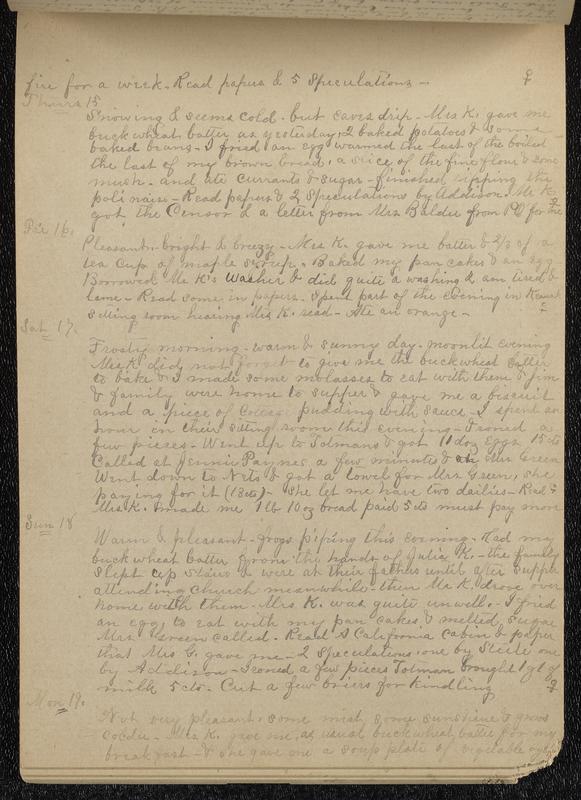 fire for a week - Read papers & 5 Speculations -
Thurs 15
Snowing & seems cold. but eaves drip - Mrs K. gave me
buckwheat batter as yesterday, 2 baked potatoes & some
baked beans - I fried an egg warmed the last of the boiled
the last of my brown bread, a slice of the fine flour & some
mush. and ate currants & sugar - finished ripping the
- Read papers & 2 Speculations by Addison. Mr K.
got the Censor & a letter from Mrs Balder from PO for me
Fri 16.
Pleasant - bright & breezy - Mrs K. gave me batter & 2/3 of a
tea cup of maple syrup. Baked my pan cakes & an egg
Borrowed Mr K's Washer & did quite a washing & am tired &
lame - Read some in papers. Spent part of the evening in
sitting room hearing Mrs K. read - Ate an orange -
Sat 17.
Frosty morning - warm & sunny day - moonlit evening
Mrs K did not forget to give me the buckwheat batter
to bake & I made some molasses to eat with them. & Jim
& family were home to supper & gave me a biscuit
and a piece of pudding with sauce - I spent an
hour in their sitting room this evening - Ironed a
few pieces - Went up to Tolmans & got 11 doz eggs 15 cts
Called at Jennie Paynes a few minutes & on Mrs Green
Went down to N's & got a towel for Mrs Green, she
paying for it (18cts) - She let me have two dailies - Read
Mrs K. made me 1 lb 10 oz bread paid 5 cts must pay more
Sun 18
Warm & pleasant - frogs piping this evening - Had my
buckwheat batter from the hands of Julia K. - the family
slept up stairs & were at their fathers until after supper
attending church meanwhile - then Mr K. drove over
home with them - Mrs K. was quite unwell. - I fried
an egg to eat with my pan cakes & melted sugar
Mrs Green called. Read A California cabin & paper
that Mrs G. gave me - 2 Speculations, one by Steele one
by Addison - Ironed a few pieces Tolman brought 1 qt of
milk 5 cts - Cut a few briers for kindling
Mon 19.
Not very pleasant. some mist, some sunshine & grows
colder - Mrs K. gave me, as usual buckwheat batter for my
breakfast - & she gave me a soup plate of vegetable